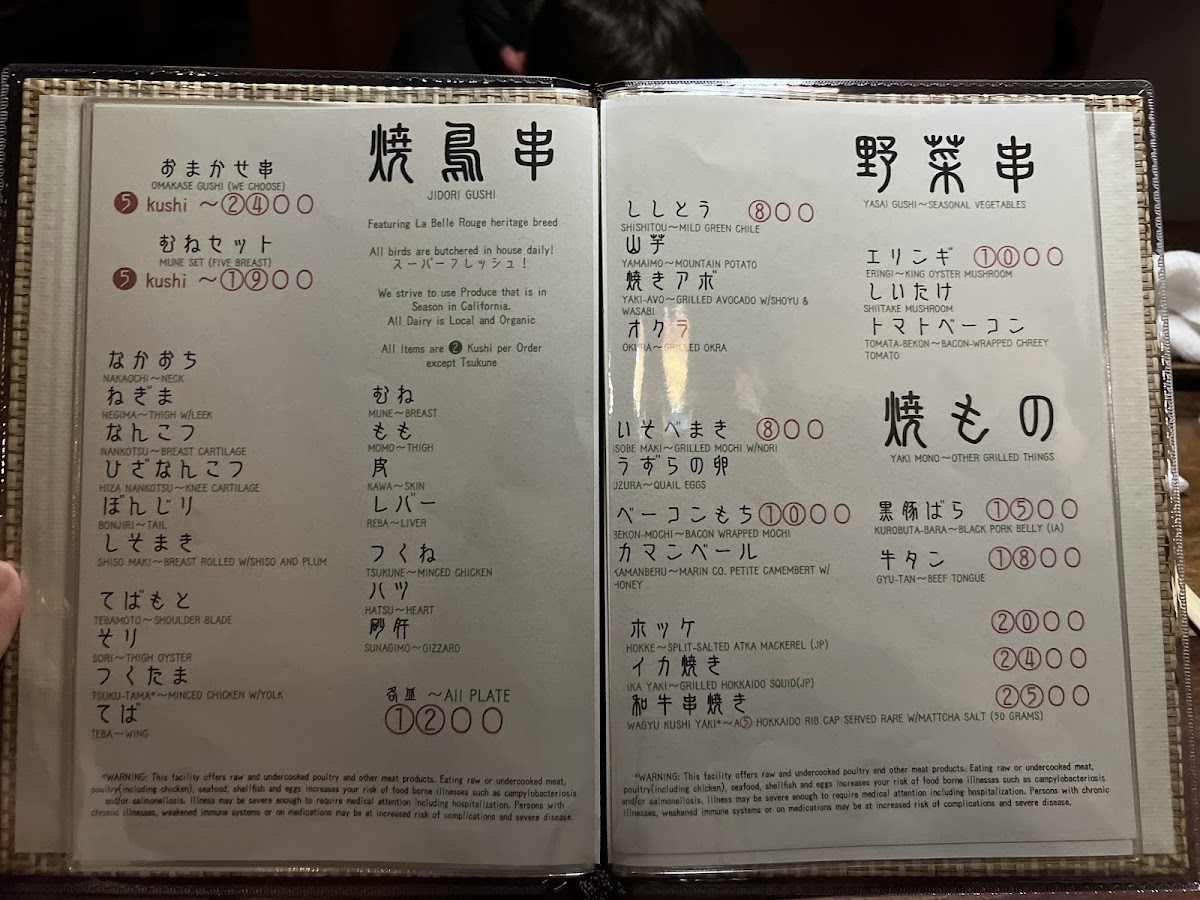 焼鳥串
JIDORI GUSHI
おまかせ串
OMAKASE GUSHI (WE CHOOSE)
5 kushi ～2400
むねセット
MUNE SET (FIVE BREAST)
5 kushi ～1900
Featuring La Belle Rouge heritage breed
All birds are butchered in house daily!
スーパーフレッシュ！
We strive to use Produce that is in
Season in California.
All Dairy is Local and Organic
All Items are 2 Kushi per Order
except Tsukune
なかおち
NAKAOCHI～NECK
ねぎま
NEGIMA～THIGH W/LEEK
なんこつ
NANKOTSU～BREAST CARTILAGE
ひざなんこつ
HIZA NANKOTSU～KNEE CARTILAGE
ぼんじり
BONJIRI～TAIL
しそまき
SHISO MAKI～BREAST ROLLED W/SHISO AND PLUM
てばもと
TEBAMOTO～SHOULDER BLADE
そり
SORI～THIGH OYSTER
つくたま
TSUKU-TAMA*～MINCED CHICKEN W/YOLK
てば
TEBA～WING
むね
MUNE～BREAST
もも
MOMO～THIGH
皮
KAWA～SKIN
レバー
REBA～LIVER
つくね
TSUKUNE～MINCED CHICKEN
ハツ
HATSU～HEART
砂肝
SUNAGIMO～GIZZARD
各皿 ～All PLATE
1200
*WARNING: This facility offers raw and undercooked poultry and other meat products. Eating raw or undercooked meat,
poultry(including chicken), seafood, shellfish and eggs increases your risk of food borne illnesses such as campylobacteriosis
and/or salmonellosis. Illness may be severe enough to require medical attention including hospitalization. Persons with
chronic illnesses, weakened immune systems or on medications may be at increased risk of complications and severe disease.
野菜串
YASAI GUSHI～SEASONAL VEGETABLES
ししとう 800
SHISHITOU～MILD GREEN CHILE
山芋
YAMAIMO～MOUNTAIN POTATO
焼きアボ
YAKI-AVO～GRILLED AVOCADO W/SHOYU &
WASABI
オクラ
OKURA～GRILLED OKRA
エリンギ 1000
ERINGI～KING OYSTER MUSHROOM
しいたけ
SHIITAKE MUSHROOM
トマトベーコン
TOMATA-BEKON～BACON-WRAPPED CHREEY
TOMATO
焼もの
YAKI MONO～OTHER GRILLED THINGS
いそべまき 800
ISOBE MAKI～GRILLED MOCHI W/NORI
うずらの卵
UZURA～QUAIL EGGS
ベーコンもち 1000
BEKON-MOCHI～BACON WRAPPED MOCHI
カマンベール
KAMANBERU～MARIN CO. PETITE CAMEMBERT W/
HONEY
黒豚ばら 1500
KUROBUTA-BARA～BLACK PORK BELLY (IA)
牛タン 1800
GYU-TAN～BEEF TONGUE
ホッケ 2000
HOKKE～SPLIT-SALTED ATKA MACKEREL (JP)
イカ焼き 2400
IKA YAKI～GRILLED HOKKAIDO SQUID(JP)
和牛串焼き 2500
WAGYU KUSHI YAKI*～A5 HOKKAIDO RIB CAP SERVED RARE W/MATTCHA SALT (50 GRAMS)
*WARNING: This facility offers raw and undercooked poultry and other meat products. Eating raw or undercooked meat,
poultry(including chicken), seafood, shellfish and eggs increases your risk of food borne illnesses such as campylobacteriosis
and/or salmonellosis. Illness may be severe enough to require medical attention including hospitalization. Persons with chronic
illnesses, weakened immune systems or on medications may be at increased risk of complications and severe disease.